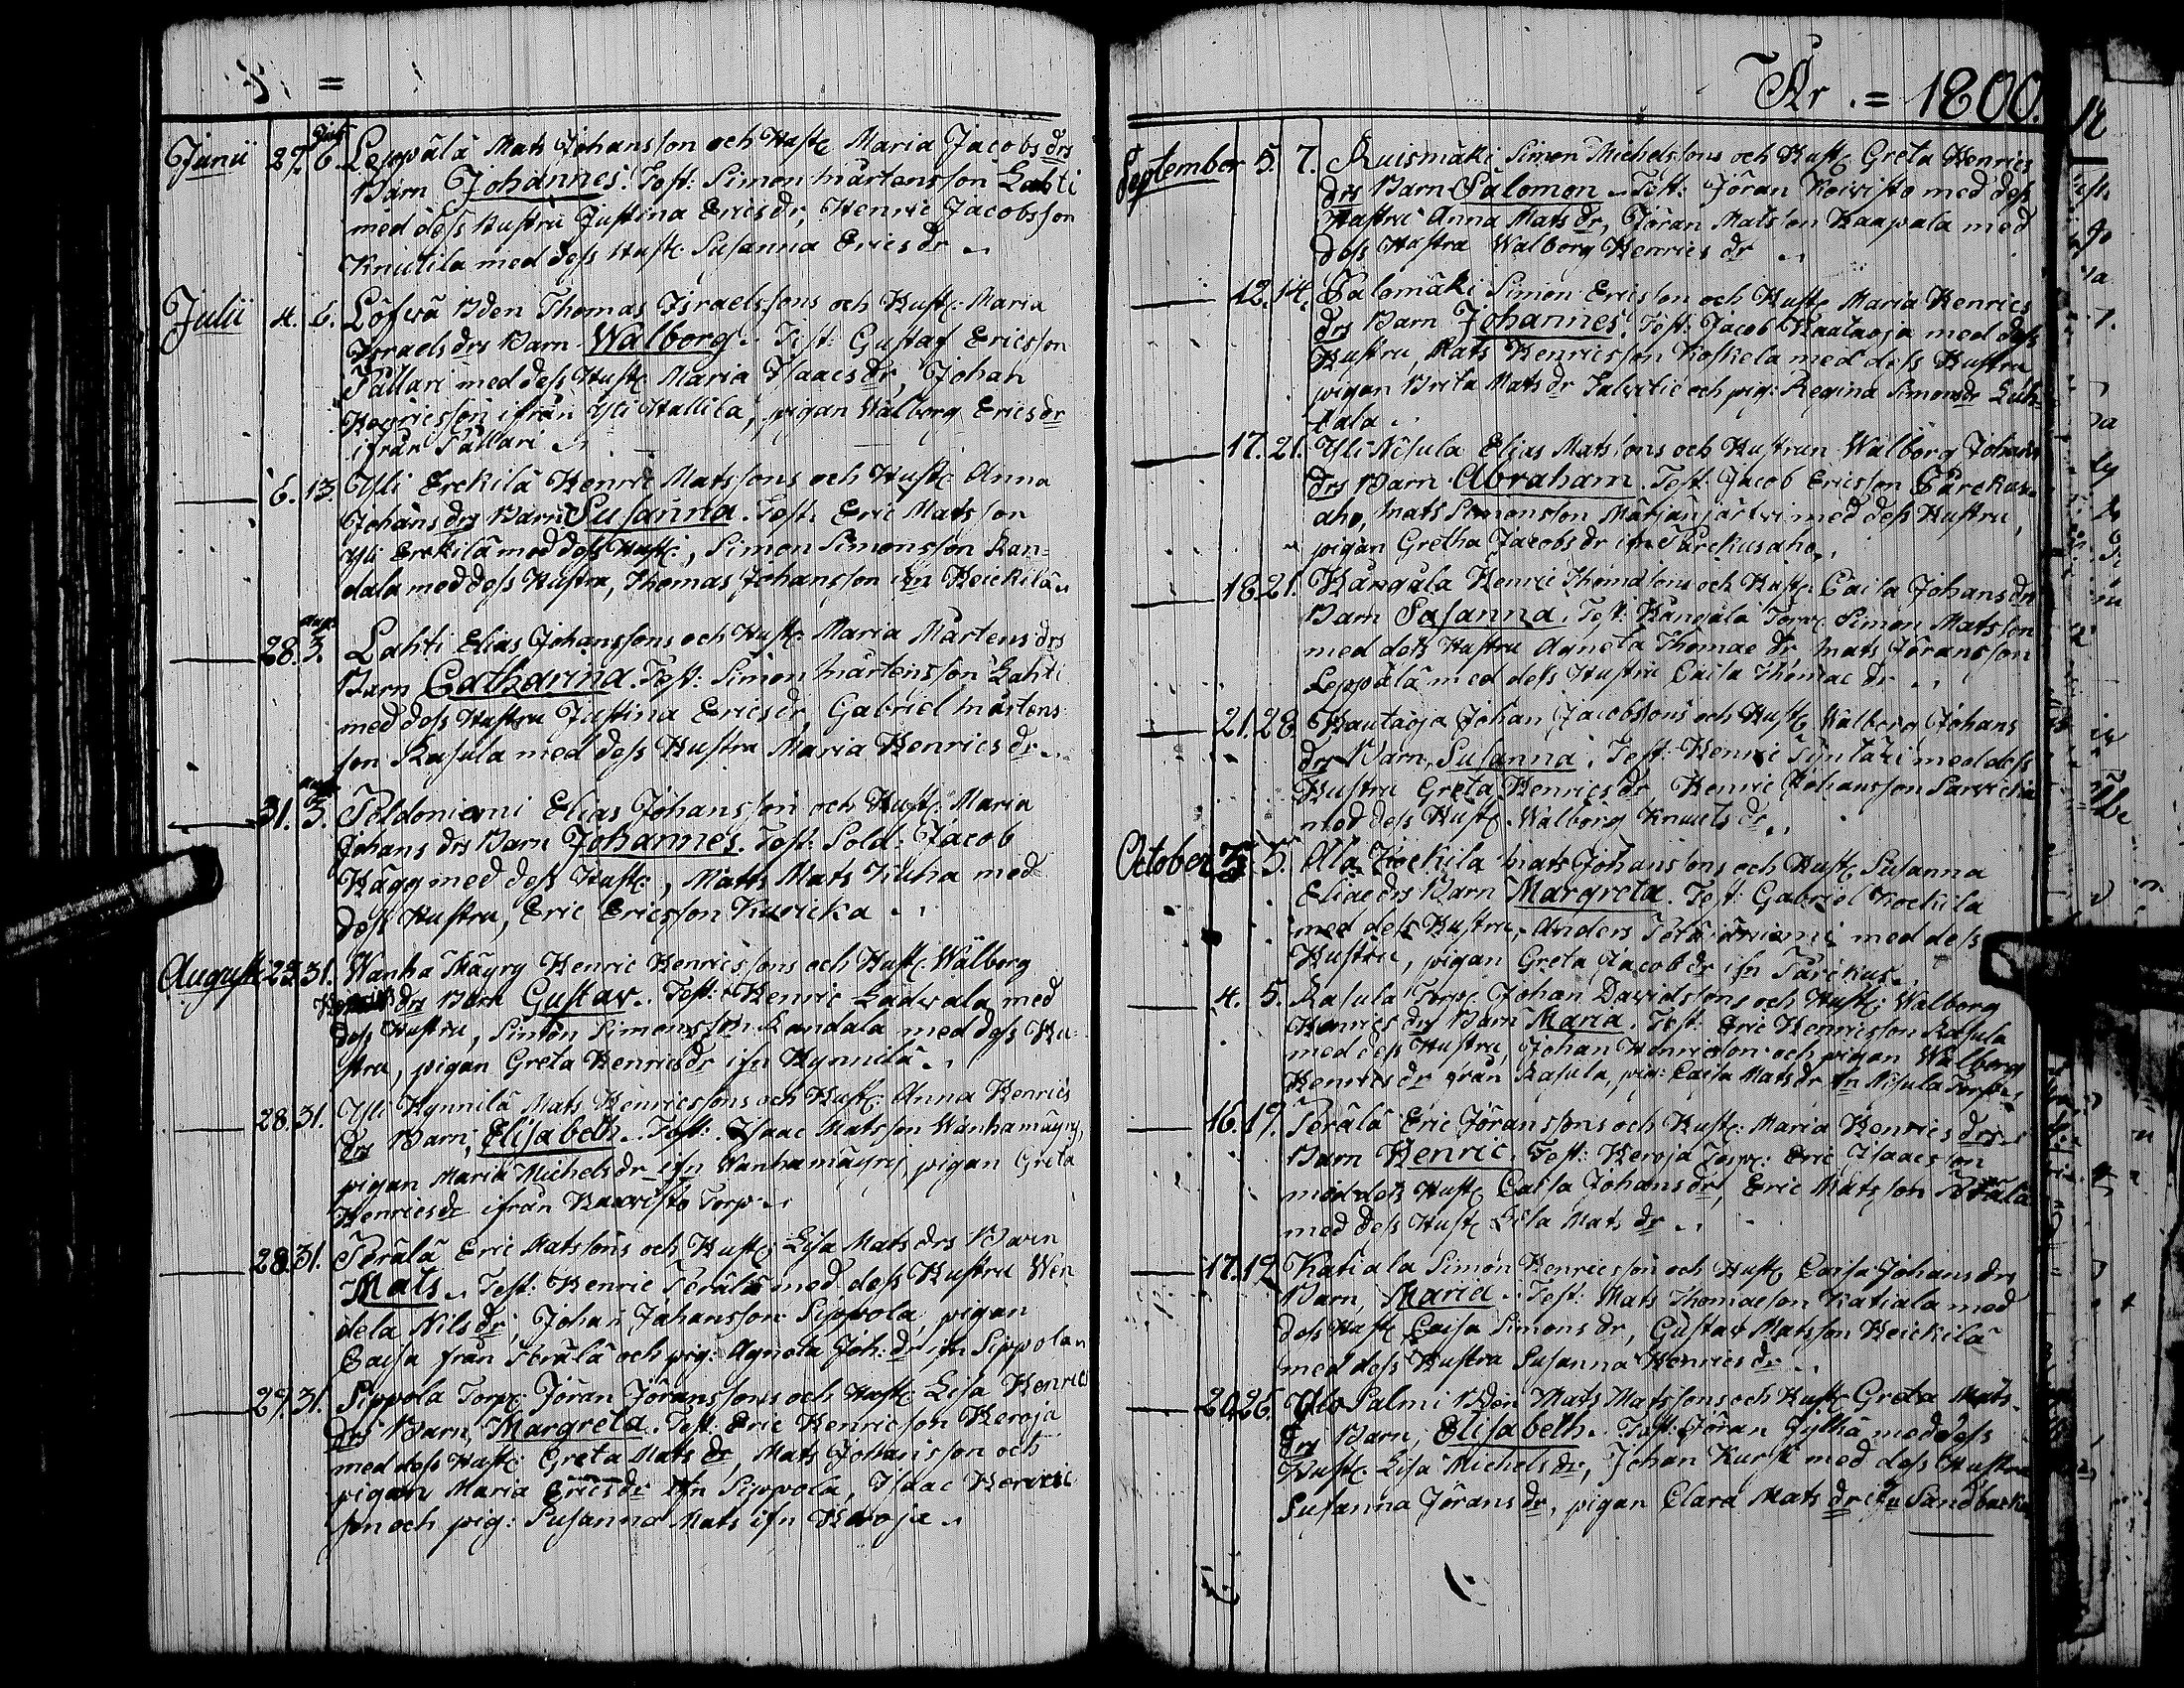 Junii 29. Julii 6. Leppälä Mats Johansson och Hust: Maria Jacobs drs
Barn Johannes. Test: Simon Mårtensson Lahti
med dess Hustru Justina Ericsdr, Henric Jacobsson
Knutila med dess Hust: Susanna Ericsdr
Julii 4. 6. Löfwä Bden Thomas Israelssons och Hust: Maria
Israels drs Barn Walborg. Test: Gustaf Ericsson
Pällari med dess Hust: Maria Isaacs dr, Johan
Henricsson ifrån Yli Hallila, pigan Walborg Ericsdr
ifrån Pällari
6. 13. Yli Erckilä Henric Matssons och Hust: Anna
Johans drs Barn Susanna. Test: Eric Matsson
Yli Erckilä med dess Hust:, Simon Simonsson Ran=
dala med dess Hustru, Thomas Johansson ifn Heickilä
28. aug: 3. Lahti Elias Johanssons och Hust: Maria Mårtens drs
Barn Catharina. Test: Simon Mårtensson Lahti
med dess Hustru Justina Ericsdr, Gabriel Mårtens
son Rasula med dess Hustru Maria Henrics dr
31. aug: 3. Peldoniemi Elias Johansson och Hust: Maria
Johans drs Barn Johannes. Test: Sold: Jacob
Hägg med dess Hust:, Matts Mats Kiuha med
dess Hustru, Eric Ericsson Kuricka
Augusti 23. 31. Wanha Mäyry Henric Henricssons och Hust: Walborg
Henrics drs Barn Gustav. Test: Henric Ladwala med
dess Hustru, Simon Simonsson Randala med dess Hu=
stru, pigan Greta Henricsdr ifn Hynnilä
28. 31. Yli Hynnilä Mats Henricssons och Hust: Anna Henrics
drs Barn, Elisabeth. Test: Isaac Matsson Wanhamäyry,
pigan Maria Michelsdr ifn Wanhamäyry, pigan Greta
Henricsdr ifrån Haavisto Torp
28. 31. Perälä Eric Matssons och Hust: Lisa Mats drs Barn
Mats. Test: Henric Perälä med dess Hustru Wen
dela Nils dr, Johan Johansson Sippola, pigan
Caisa från Perälä och pig: Agneta Joh: dr ifn Sippolan
29. 31. Sippola Torp: Jöran Jöranssons och Hust: Lisa Henrics
drs Barn, Margreta. Test: Eric Henricsson Heroja
med dess Hust: Greta Mats dr, Mats Johansson och
pigan Maria Ericsdr ifn Sippola, Isaac Henric
son och pig: Susanna Mats ifn Heroja
År = 1800.
September 5. 7. Ruismäki Simon Michelssons och Hust: Greta Henrics
drs Barn Salomon. Test: Jöran Koivisto med dess
Hustru Anna Mats dr, Jöran Matsson Haapala med
dess Hustru Walborg Henrics dr
12. 14. Palomäki Simon Ericsson och Hust: Maria Henrics
drs Barn Johannes. Test: Jacob Hautaoja med dess
Hustru, Mats Henricsson Koskela med dess Hustru
pigan Brita Mats dr Salvitie och pig: Regina Simonsdr Luh=
tala
17. 21. Yli Nisula Elias Matssons och Hustrun Walborg Johans
drs Barn Abraham. Test: Jacob Ericsson Pärekus=
aho, Mats Simonsson Marjanjärvi med dess Hustru,
pigan Gretha Jacobsdr ifn Pärekusaho
18. 21. Kangala Henric Thomassons och Hust: Caisa Johans drs
Barn Susanna. Test: Kangala Torp: Simon Matsson
med dess Hustru Agneta Thomae dr Mats Jöransson
Leppälä med dess Hustru Caisa Thomae dr
21. 28. Hautaoja Johan Jacobssons och Hust: Walborg Johans
drs Barn, Susanna. Test: Henric Syntäri med dess
Hustru Greta Henricsdr, Henric Johansson Parvicka
med dess Hust: Walborg Knuts dr
October 5. Ala Kockila Mats Johanssons och Hust: Susanna
Eliae drs Barn Margreta. Test: Gabriel Kockila
med dess Hustru, Anders med dess
Hustru, pigan Greta Jacobsdr ifn Pärekus
4. 5. Rasula Torp: Johan Davidssons och Hust: Walborg
Henrics drs Barn Maria. Test: Eric Henricsson Rasula
med dess Hustru, Johan Henricsson och pigan Walborg
Henricsdr från Rasula, pig: Caisa Matsdr ifn Nisula Torp
16. 19. Perälä Eric Jöranssons och Hust: Maria Henrics drs
Barn Henric. Test: Heroja Torp: Eric Isaacsson
med dess Hust: Caisa Johans dr, Eric Matsson Perälä
med dess Hust: Lisa Mats dr
17. 19. Katiala Simon Henricsson och Hust: Caisa Johans drs
Barn, Maria. Test: Mats Thomaeson Katiala med
dess Hust: Caisa Simons dr, Gustav Matsson Heickilä
med dess Hustru Susanna Henrics dr
20. 26. Ylo Salmi Bden Mats Matssons och Hust: Greta Mats
drs Barn, Elisabeth. Test: Jöran Jylhä med dess
Hust: Lisa Michels dr, Johan Kurki med dess Hustru
Susanna Jörans dr, pigan Clara Mats dr ifn Sandbacka